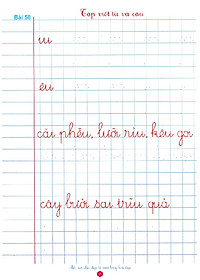 Bài 50
Tập viết từ và câu
iu
êu
cái phễu, lưỡi rìu, kêu gọi
cây bưởi sai trĩu quả